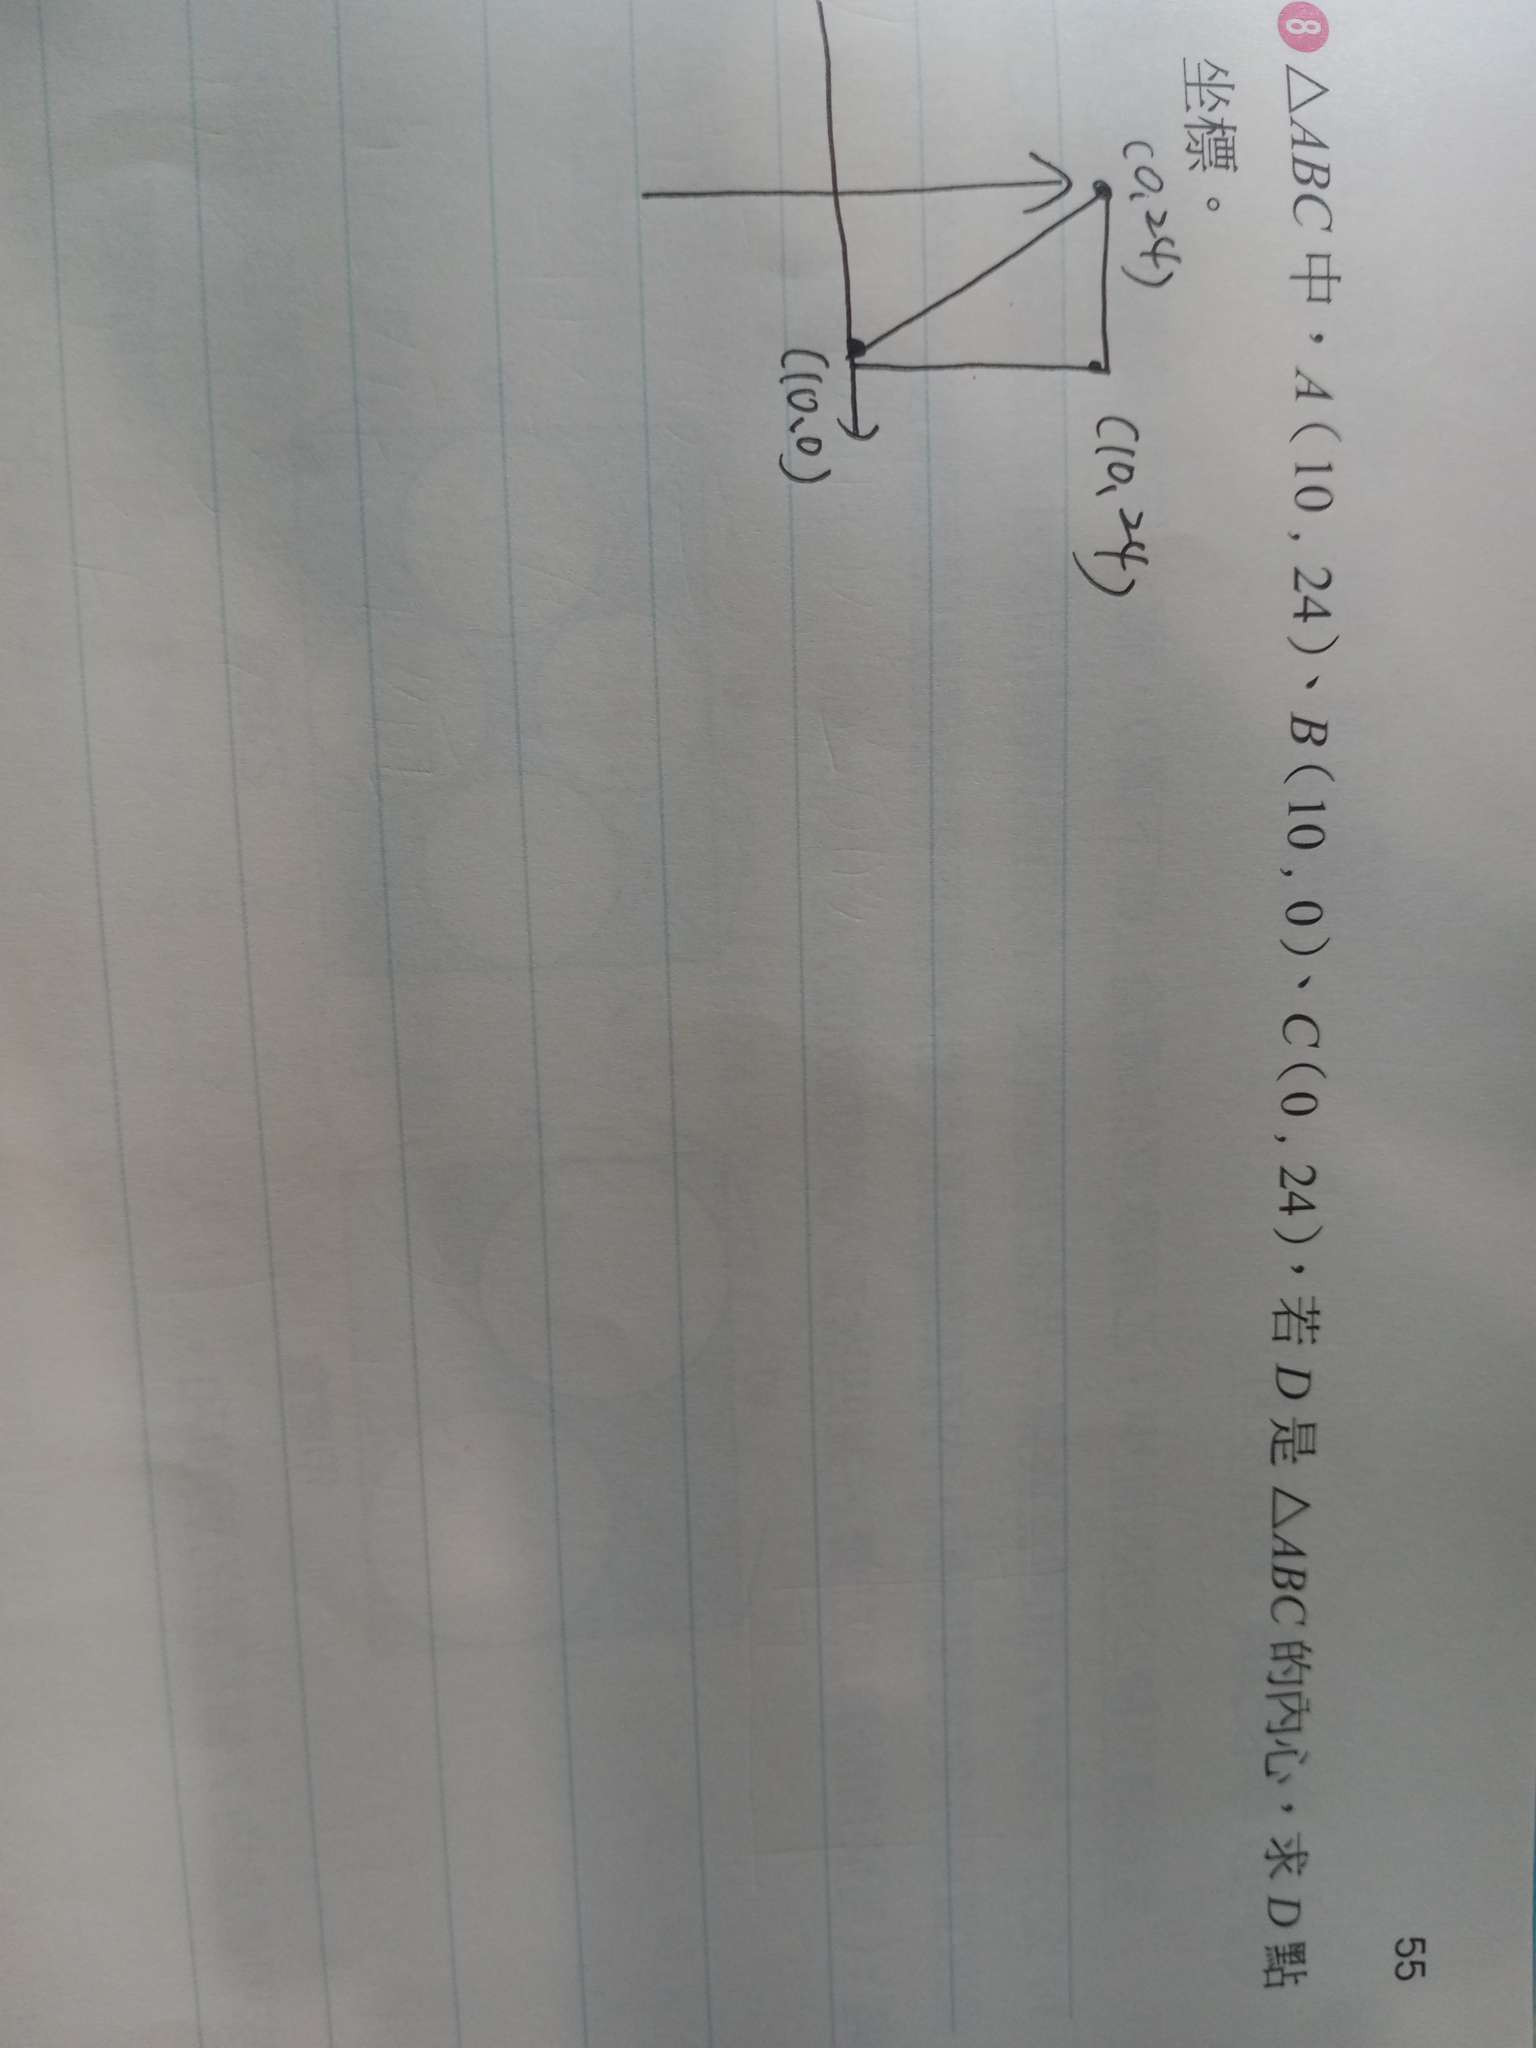 55
8 △ABC 中，A(10 , 24)、B(10 , 0)、C(0 , 24)，若 D 是 △ABC 的內心，求 D 點
坐標。
(0, 24)
(10, 24)
(10, 0)